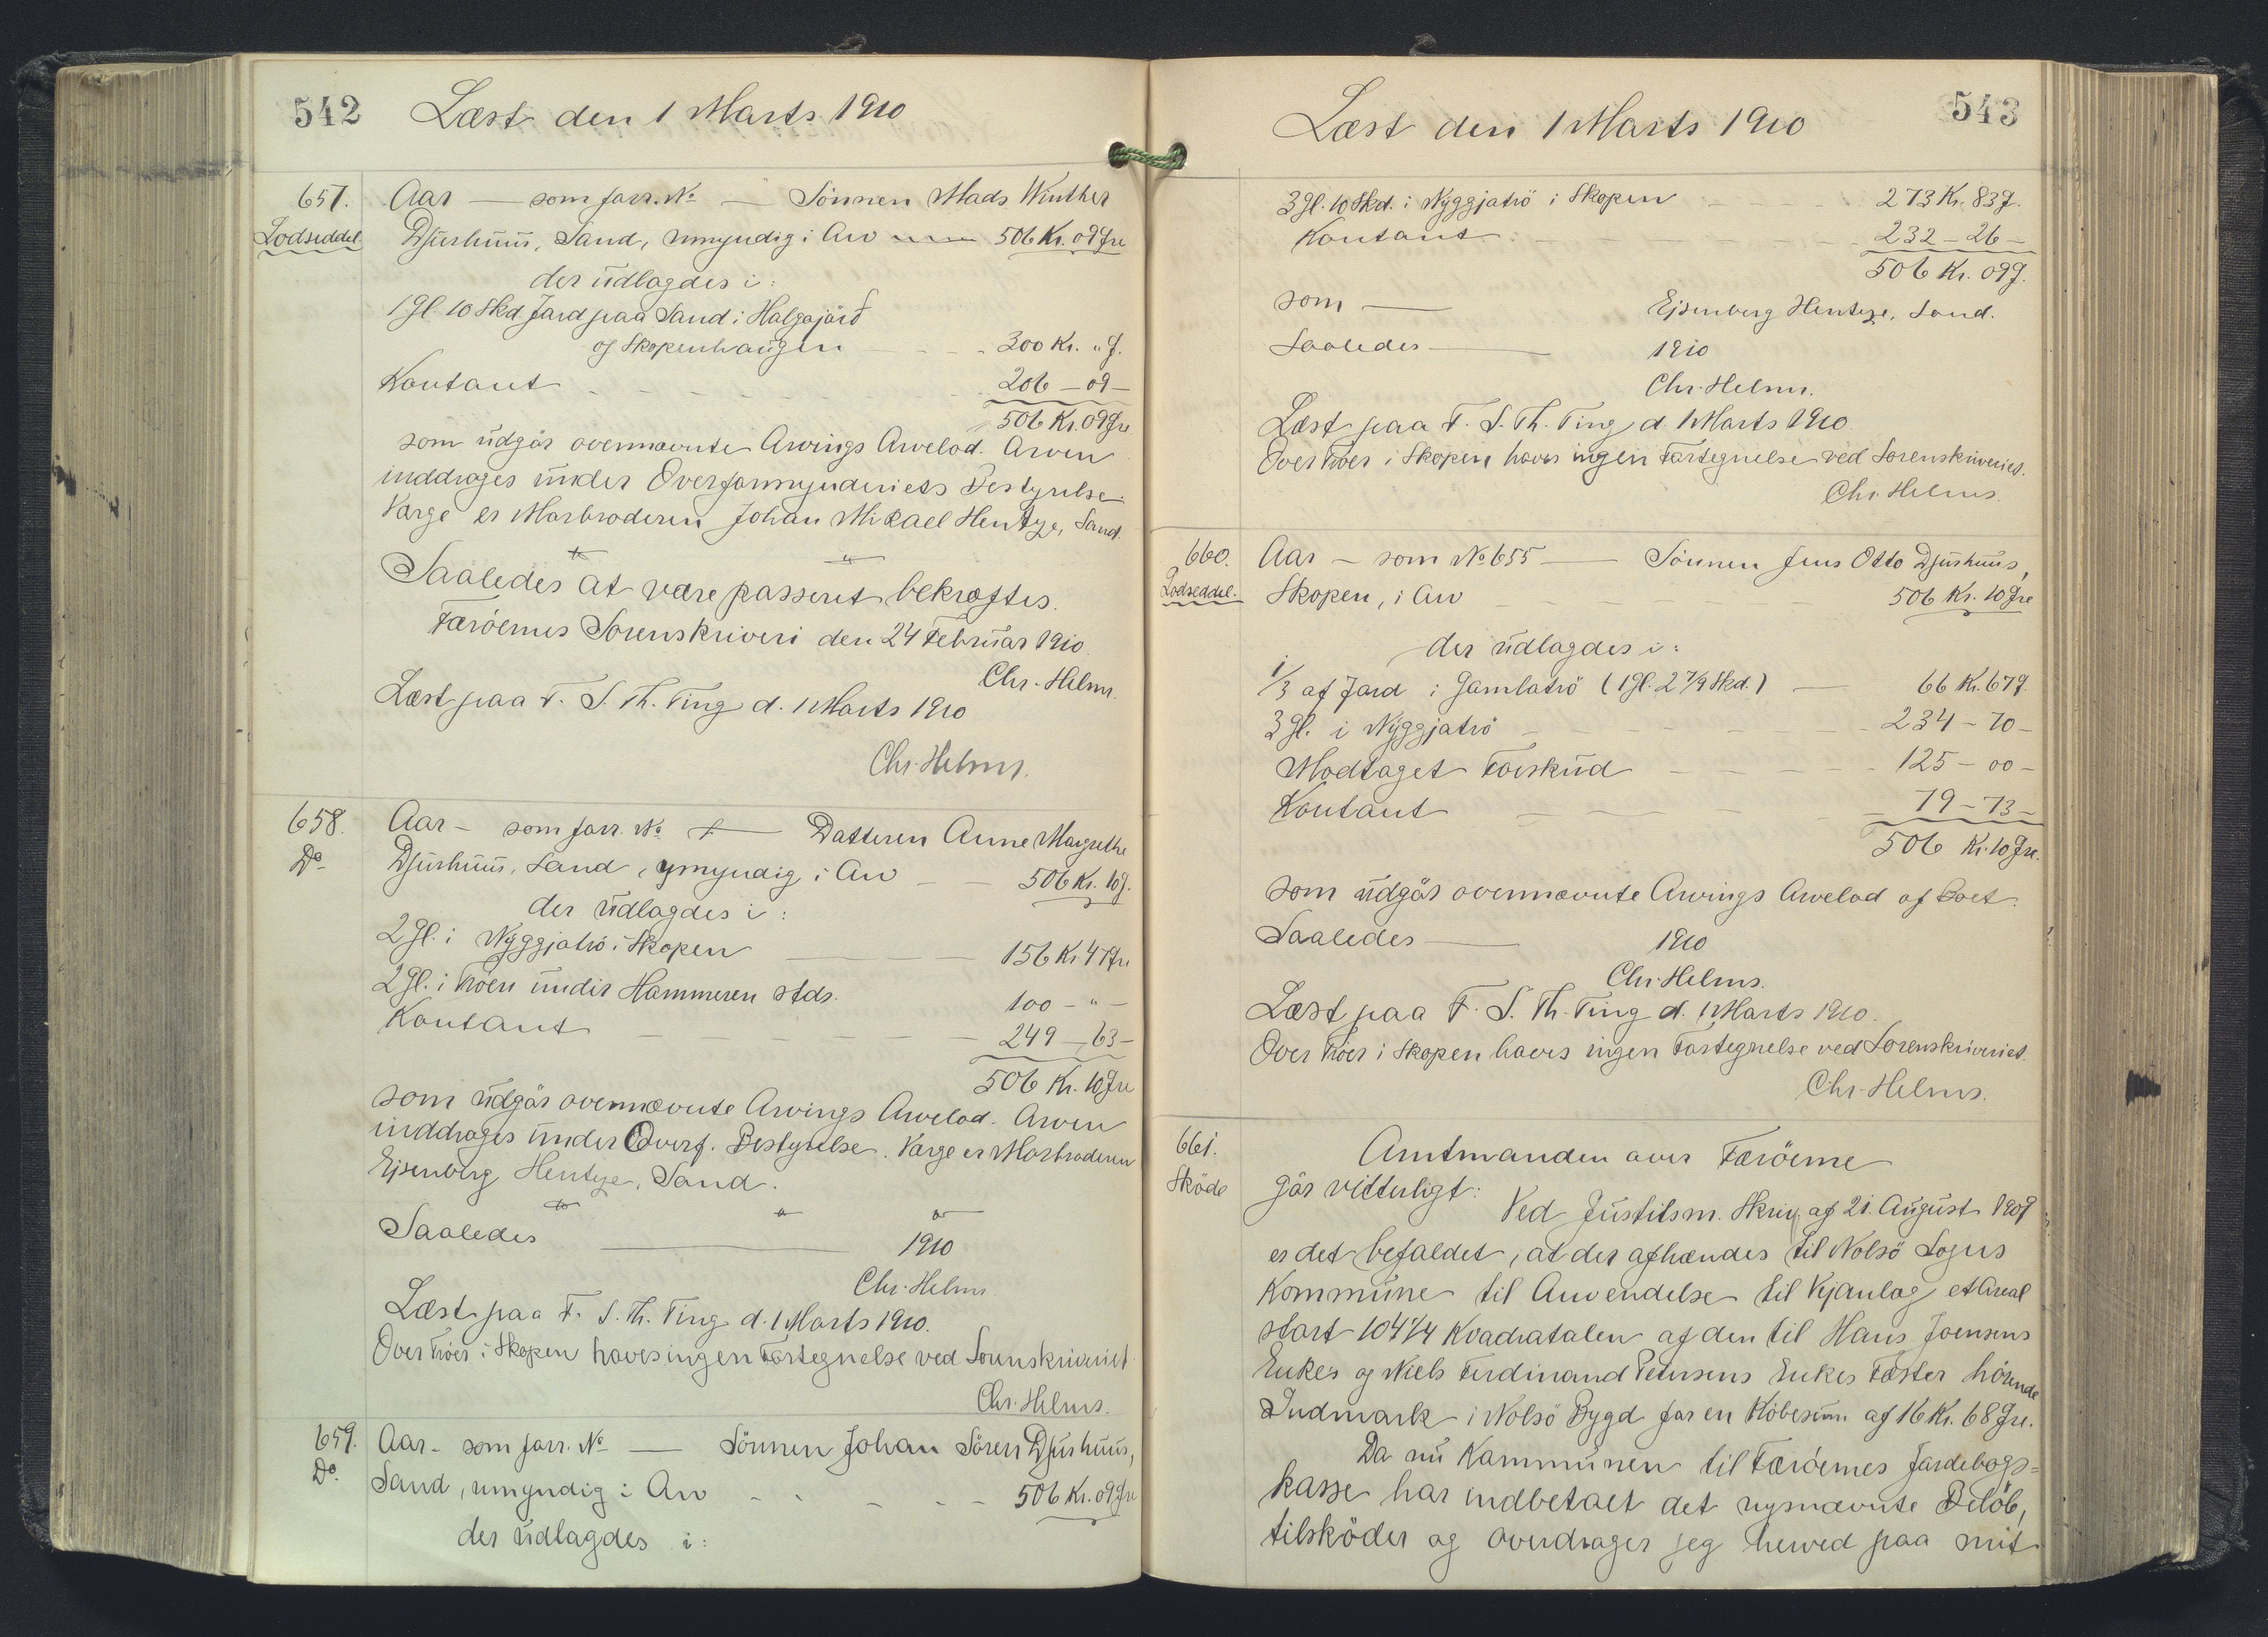 542 Læst den 1 Marts 1910
657. Aar — som forr. No — Sönnen Mads Winther
Lodseddel Djurhuus, Sand, umyndig i Arv — 506 Kr. 09 Øre
der udlagdes i:
1 Gl. 10 Skd. Jord paa Sand i Halgajörd
og Skopenhaugen - - 300 Kr. " Ø.
Kontant - - - 206 - 09 -
506 Kr. 09 Øre
som udgör ovennævnte Arvings Arvelod. Arven
inddrages under Overformynderiets Bestyrelse.
Værge er Morbroderen Johan Mikael Hentze, Sand.
Saaledes at være passeret bekræftes.
Færöernes Sorenskriveri den 24 Februar 1910.
Chr. Helms.
Læst paa F. S. Th. Ting d. 1 Marts 1910
Chr. Helms.
658. Aar - som forr. No — Datteren Anne Margrethe
Do Djurhuus, Sand, umyndig i Arv - - 506 Kr. 10 Ø.
der udlagdes i:
2 Gl. i Nÿggjatrö i Skopen — 156 Kr. 47 Øre
2 Gl. i Tröen undir Hammeren stds. 100 - " -
Kontant - - - 249 - 63 -
506 Kr. 10 Øre
som udgör ovennævnte Arvings Arvelod. Arven
inddrages under Overf. Bestyrelse. Værge er Morbroderen
Ejsenberg Hentze, Sand.
Saaledes — 1910
Chr. Helms
Læst paa F. S. Th. Ting d. 1 Marts 1910.
Over Tröer i Skopen haves ingen Fortegnelse ved Sorenskriveriet
Chr. Helms.
659. Aar - som forr. No — Sönnen Johan Sören Djurhuus,
Do. Sand, umyndig i Arv - - - 506 Kr. 09 Øre
der udlagdes i:
Læst den 1 Marts 1910 543
3 Gl. 10 Skd. i Nÿggjatrö i Skopen - - - 273 Kr. 83 Ø.
Kontant - - - 232 - 26 -
506 Kr. 09 Ø.
som — Ejsenberg Hentze, Sand.
Saaledes — 1910
Chr. Helms.
Læst paa F. S. Th. Ting d. 1 Marts 1910.
Over Tröer i Skopen haves ingen Fortegnelse ved Sorenskriveriet.
Chr. Helms.
660. Aar - som No 655 — Sönnen Jens Otto Djurhuus,
Lodseddel. Skopen, i Arv - - - 506 Kr. 10 Øre
der udlagdes i:
1/3 af Jord i Gamlatrö (1 Gl. 2 7/9 Skd.) — 66 Kr. 67 Ø.
3 Gl. i Nÿggjatrö - - - 234 - 70 -
Modtaget Forskud - - - 125 - 00 -
Kontant - - - 79 - 73 -
506 Kr. 10 Øre.
som udgör ovennævnte Arvings Arvelod af Boet.
Saaledes — 1910
Chr. Helms.
Læst paa F. S. Th. Ting d. 1 Marts 1910.
Over Tröer i Skopen haves ingen Fortegnelse ved Sorenskriveriet.
Chr. Helms.
661. Amtmanden over Færöerne
Sköde gör vitterligt: Ved Justitsm. Skriv. af 21. August 1909
er det befaldet, at der afhændes til Nolsö Sogns
Kommune til Anvendelse til Vejanlæg et Areal
stort 104 1/4 Kvadratalen af den til Hans Joensens
Enkes og Niels Ferdinand Petersens Enkes Fæster hörende
Indmark i Nolsö Bygd for en Köbesum af 16 Kr. 68 Øre.
Da nu Kommunen til Færöernes Jordebogs=
kasse har indbetalt det nysnævnte Belöb,
tilsköder og overdrager jeg herved paa mit